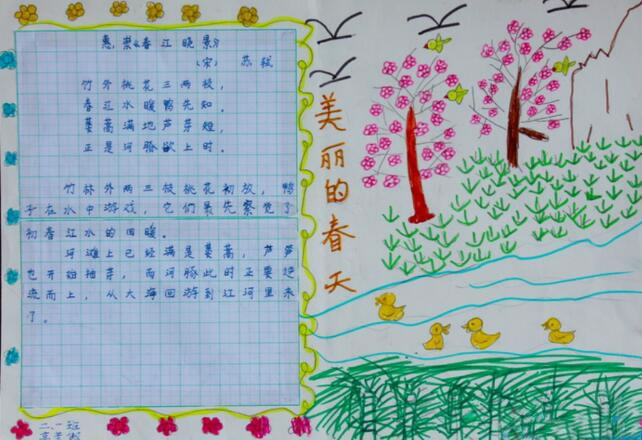 惠崇《春江晓景》
（宋） 苏轼
竹外桃花三两枝，
春江水暖鸭先知。
蒌蒿满地芦芽短，
正是河豚欲上时。
竹林外两三枝桃花初放，鸭
子在水中游戏，它们最先察觉了
初春江水的回暖。
河滩上已经满是蒌蒿，芦笋
也开始抽芽，而河豚此时正要逆
流而上，从大海回游到江河里来
了。
美丽的春天
二.一班